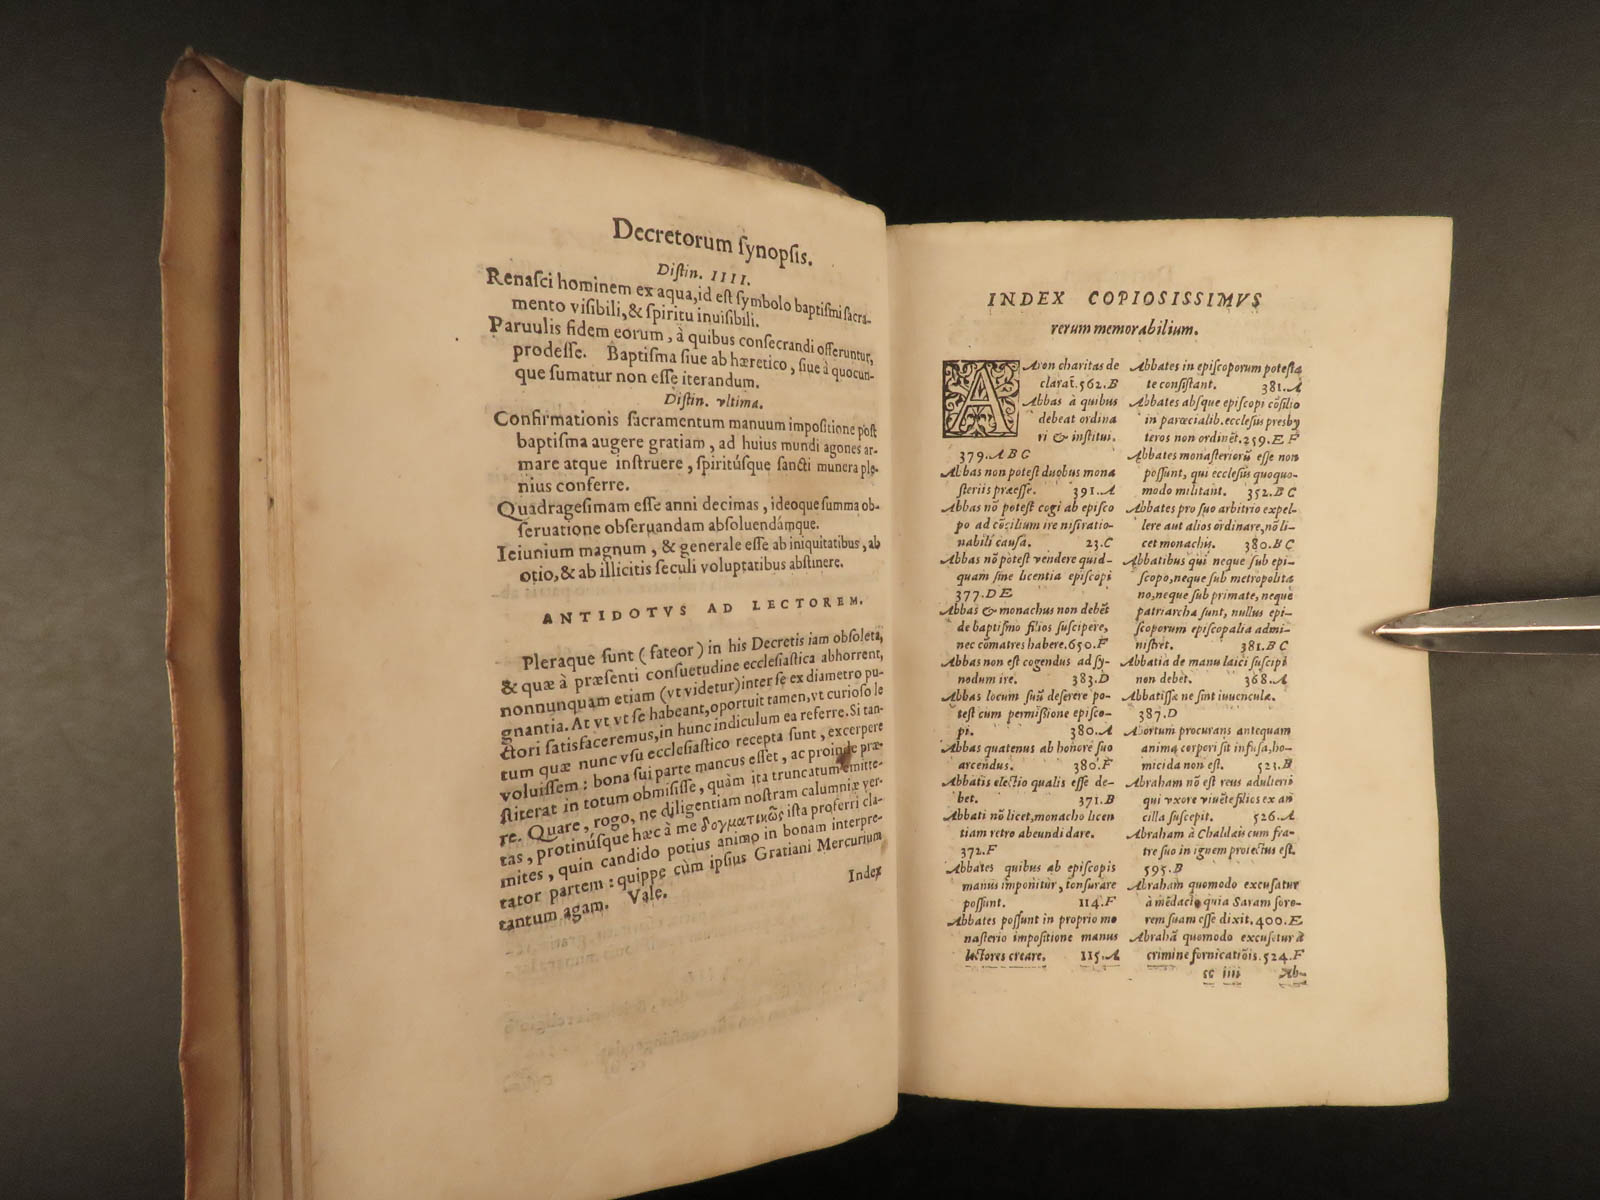 Decretorum ſynopſis.
Diſtin. IIII.
Renaſci hominem ex aqua, id eſt ſymbolo baptiſmi ſacra-
mento viſibili, & ſpiritu inuiſibili.
Paruulis fidem eorum, à quibus conſecrandi offeruntur,
prodeſſe. Baptiſma ſiue ab hæretico, ſiue à quocun-
que ſumatur non eſſe iterandum.
Diſtin. vltima.
Confirmationis ſacramentum manuum impoſitione poſt
baptiſma augere gratiam, ad huius mundi agones ar-
mare atque inſtruere, ſpiritúſque ſancti munera ple-
nius conferre.
Quadrageſimam eſſe anni decimas, ideoque ſumma ob-
ſeruatione obſeruandam abſoluendámque.
Ieiunium magnum, & generale eſſe ab iniquitatibus, ab
otio, & ab illicitis ſeculi voluptatibus abſtinere.
ANTIDOTVS AD LECTOREM.
Pleraque ſunt (fateor) in his Decretis iam obſoleta,
& quæ à præſenti conſuetudine eccleſiaſtica abhorrent,
nonnunquam etiam (vt videtur) inter ſe ex diametro pu-
gnantia. At vt vt ſe habeant, oportuit tamen, vt curioſo le
ctori ſatisfaceremus, in hunc indiculum ea referre. Si tan-
tum quæ nunc vſu eccleſiaſtico recepta ſunt, excerpere
voluiſſem: bona ſui parte mancus eſſet, ac proinde præ-
ſtiterat in totum obmiſiſſe, quàm ita truncatum emitte-
re. Quare, rogo, ne diligentiam noſtram calumniæ ver-
tas, protinúſque hæc à me δογματικῶς iſta proferri cla-
mites, quin candido potius animo in bonam interpre-
tator partem: quippe cùm ipſius Gratiani Mercurium
tantum agam. Vale.
Index
INDEX COPIOSISSIMVS
rerum memorabilium.
AAron charitas de
clarat̃. 562.B
Abbas à quibus
debeat ordina
ri & inſtitui.
379.A B C
Abbas non poteſt duobus mona
ſteriis præeſſe. 391.A
Abbas nõ poteſt cogi ab epiſco
po ad cõcilium ire niſi ratio-
nabili cauſa. 23.C
Abbas nõ poteſt vendere quid-
quam ſine licentia epiſcopi
377.D E
Abbas & monachus non debẽt
de baptiſmo filios ſuſcipere,
nec cõmatres habere. 650.F
Abbas non eſt cogendus ad ſy-
nodum ire. 383.D
Abbas locum ſuũ deſerere po-
teſt cum permiſſione epiſco-
pi. 380.A
Abbas quatenus ab honore ſuo
arcendus. 380.F
Abbatis electio qualis eſſe de-
bet. 371.B
Abbati nõ licet, monacho licen
tiam retro abeundi dare.
372.F
Abbates quibus ab epiſcopis
manus imponitur, tonſurare
poſſunt. 114.F
Abbates poſſunt in proprio mo
naſterio impoſitione manus
lectores creare. 115.A
Abbates in epiſcoporum poteſta
te conſiſtant. 381.A
Abbates abſque epiſcopi cõſilio
in parœcialib. eccleſiis presby
teros non ordinẽt. 259.E F
Abbates monaſteriorũ eſſe non
poſſunt, qui eccleſiis quoquo-
modo militant. 352.B C
Abbates pro ſuo arbitrio expel-
lere aut alios ordinare, nõ li-
cet monachis. 380.B C
Abbatibus qui neque ſub epi-
ſcopo, neque ſub metropolita
no, neque ſub primate, neque
patriarcha ſunt, nullus epi-
ſcoporum epiſcopalia admi-
niſtret. 381.B C
Abbatia de manu laici ſuſcipi
non debet. 368.A
Abbatiſſæ ne ſint iuuenculæ.
387.D
Abortum procurans antequam
anima corpori ſit infuſa, ho-
micida non eſt. 521.B
Abraham nõ eſt reus adulterii
qui vxore viuẽte filios ex an
cilla ſuſcepit. 526.A
Abraham à Chaldæis cum fra-
tre ſuo in ignem proiectus eſt.
595.B
Abraham quomodo excuſatur
à mẽdacio quia Saram ſoro-
rem ſuam eſſe dixit. 400.E
Abrahã quomodo excuſetur à
crimine fornicatiõis. 524.F
cc iiii Ab-